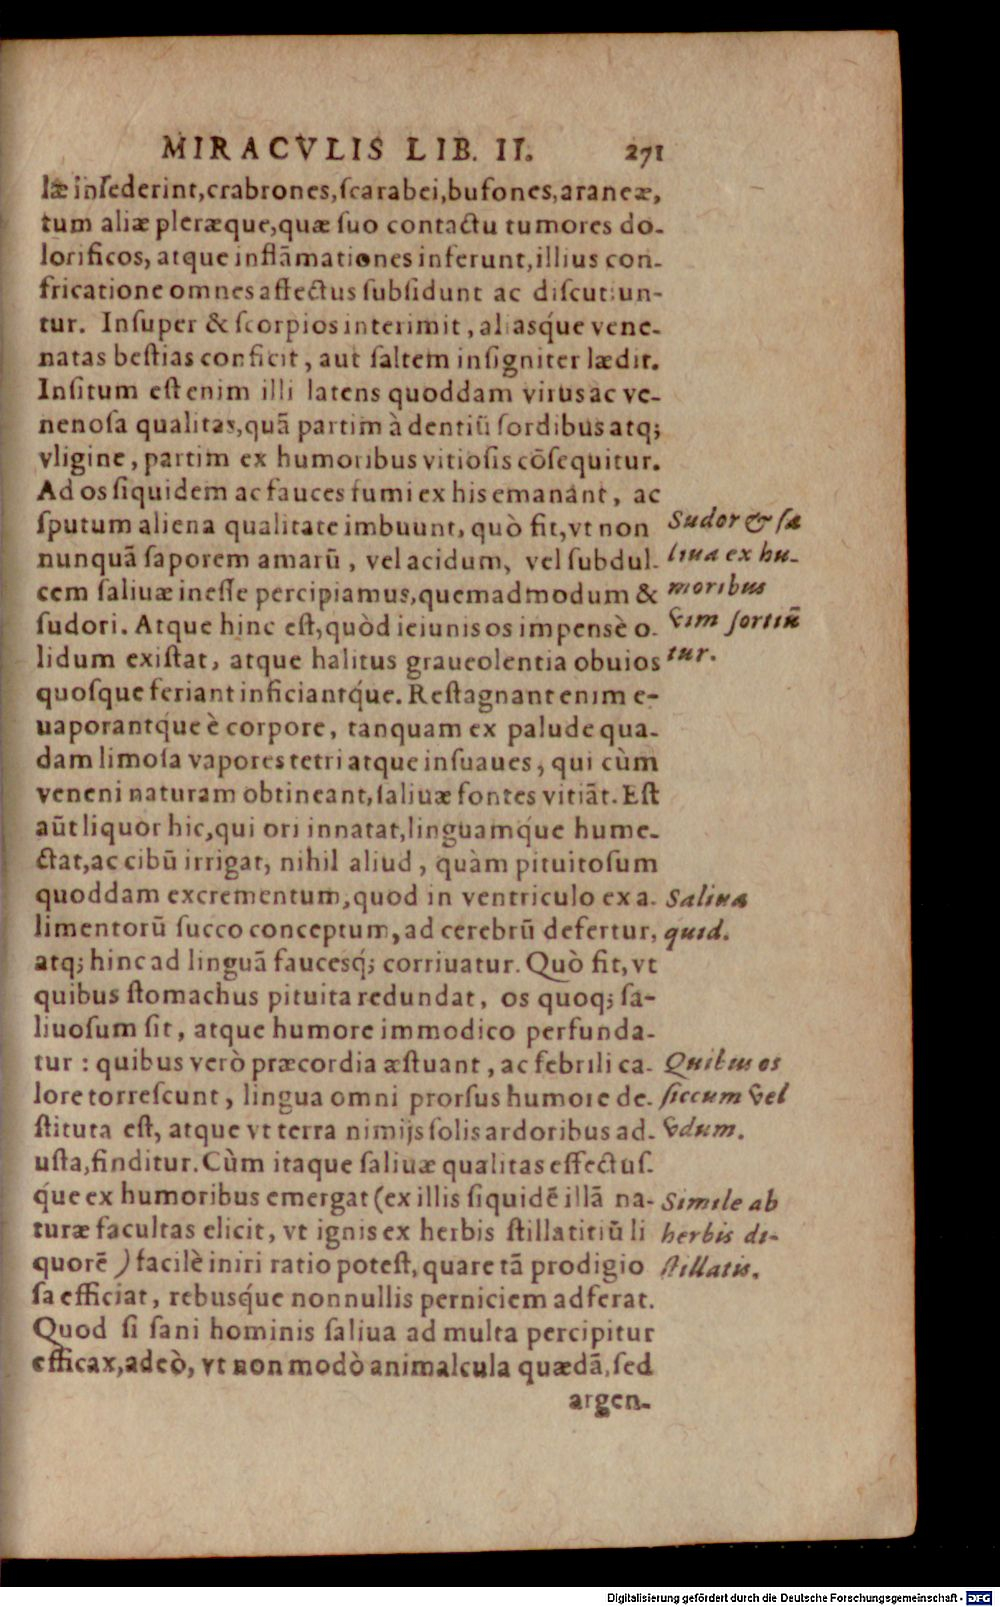 MIRACVLIS LIB. II. 271
læ inſederint, crabrones, ſcarabei, bufones, araneæ,
tum aliæ pleræque, quæ ſuo contactu tumores do-
lorificos, atque inflāmationes inferunt, illius con-
fricatione omnes affectus ſubſidunt ac diſcutiun-
tur. Inſuper & ſcorpios interimit, aliasq́ue vene-
natas beſtias conficit, aut ſaltem inſigniter lædit.
Inſitum eſt enim illi latens quoddam virus ac ve-
nenoſa qualitas, quā partim à dentiū ſordibus atq;
vligine, partim ex humoribus vitioſis cōſequitur.
Ad os ſiquidem ac fauces fumi ex his emanant, ac
ſputum aliena qualitate imbuunt, quò fit, vt non
nunquā ſaporem amarū, vel acidum, vel ſubdul-
cem ſaliuæ ineſſe percipiamus, quemadmodum &
ſudori. Atque hinc eſt, quòd ieiunis os impensè o-
lidum exiſtat, atque halitus graueolentia obuios
quoſque feriant inficiantq́ue. Reſtagnant enim e-
uaporantq́ue è corpore, tanquam ex palude qua-
dam limoſa vapores tetri atque inſuaues, qui cùm
veneni naturam obtineant, ſaliuæ fontes vitiāt. Eſt
aūt liquor hic, qui ori innatat, linguamq́ue hume-
ctat, ac cibū irrigat, nihil aliud, quàm pituitoſum
quoddam excrementum, quod in ventriculo ex a-
limentorū ſucco conceptum, ad cerebrū defertur,
atq; hinc ad linguā faucesq́; corriuatur. Quò fit, vt
quibus ſtomachus pituita redundat, os quoq; ſa-
liuoſum ſit, atque humore immodico perfunda-
tur : quibus verò præcordia æſtuant, ac febrili ca-
lore torreſcunt, lingua omni prorſus humore de-
ſtituta eſt, atque vt terra nimijs ſolis ardoribus ad-
uſta, finditur. Cùm itaque ſaliuæ qualitas effectuſ-
q́ue ex humoribus emergat (ex illis ſiquidē illā na-
turæ facultas elicit, vt ignis ex herbis ſtillatitiū li
quorē ) facilè iniri ratio poteſt, quare tā prodigio
ſa efficiat, rebusq́ue nonnullis perniciem adferat.
Quod ſi ſani hominis ſaliua ad multa percipitur
efficax, adeò, vt non modò animalcula quædā, ſed
argen-
Sudor & ſa
liua ex hu-
moribus
vim ſortiū
tur.
Saliua
quid.
Quibus os
ſiccum vel
vdum.
Simile ab
herbis di-
ſtillatis.
Digitalisierung gefördert durch die Deutsche Forschungsgemeinschaft - DFG